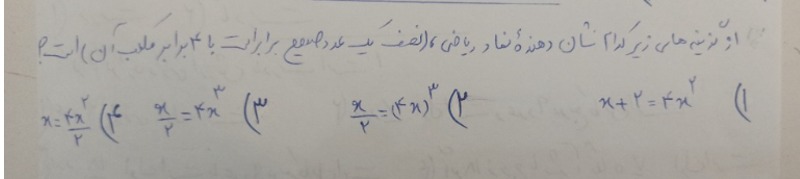 از گزینه های زیر کدام نشان دهندهٔ نماد ریاضی، (نصف یک عدد صحیح برابر است با ۴ برابر مکعب آن) است؟
۱) x + ۲ = ۴x^۲   ۲) x/۲ = (۴x)^۳   ۳) x/۲ = ۴x^۳   ۴) x = ۴x^۲/۲